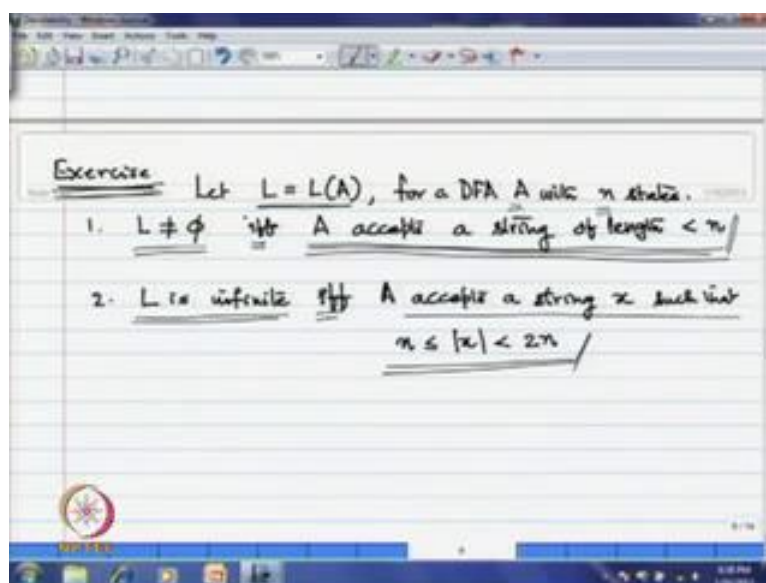 Exercise
Let L = L(A), for a DFA A with n states.
1. L ≠ φ iff A accepts a string of length < n
2. L is infinite iff A accepts a string x such that
n ≤ |x| < 2n
NPTEL